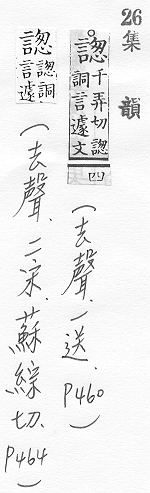 26集 韻
。謥千弄切謥詷言遽文四
(去聲.一送.P460)
謥謥詷言遽
(去聲.二宋.蘇綜切.P464)